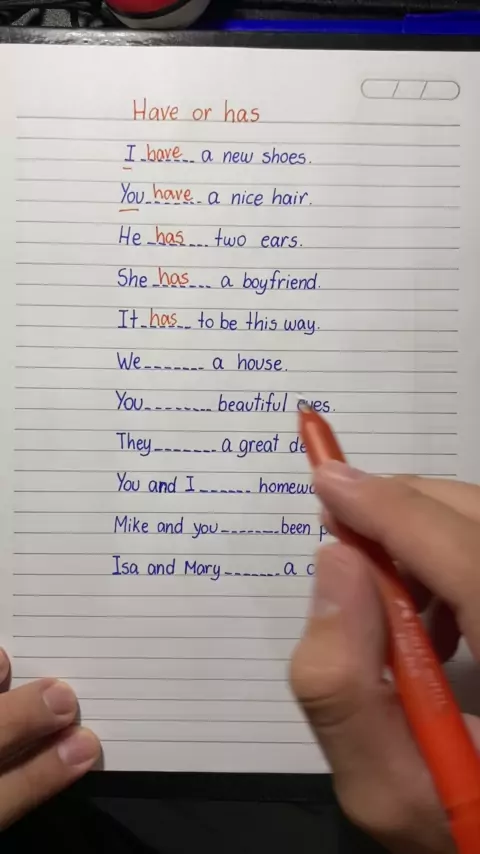 Have or has
I have a new shoes.
You have a nice hair.
He has two ears.
She has a boyfriend.
It has to be this way.
We ------- a house.
You -------- beautiful eyes.
They ------- a great
You and I ------
Mike and you ------- been
Isa and Mary ------- a